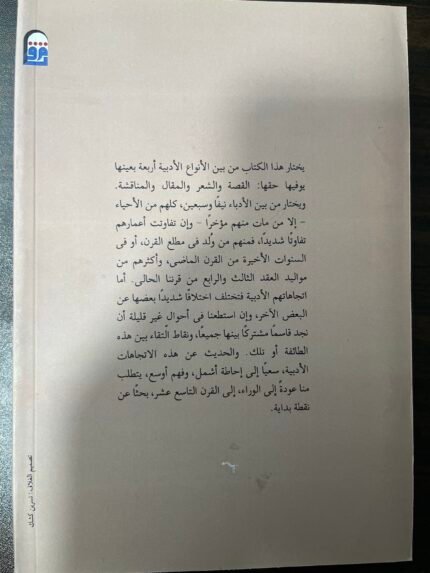 يختار هذا الكتاب من بين الأنواع الأدبية أربعة بعينها
يوفيها حقها: القصة والشعر والمقال والمناقشة.
ويختار من بين الأدباء نيفًا وسبعين، كلهم من الأحياء
– إلا من مات منهم مؤخرًا – وإن تفاوتت أعمارهم
تفاوتًا شديدًا، فمنهم من وُلد فى مطلع القرن، أو فى
السنوات الأخيرة من القرن الماضى، وأكثرهم من
مواليد العقد الثالث والرابع من قرننا الحالى. أما
اتجاهاتهم الأدبية فتختلف اختلافًا شديدًا بعضها عن
البعض الآخر، وإن استطعنا فى أحوال غير قليلة أن
نجد قاسمًا مشتركًا بينها جميعًا، ونقاط التقاء بين هذه
الطائفة أو تلك. والحديث عن هذه الاتجاهات
الأدبية، سعيًا إلى إحاطة أشمل، وفهم أوسع، يتطلب
منا عودةً إلى الوراء، إلى القرن التاسع عشر، بحثًا عن
نقطة بداية.
تصميم الغلاف: نسرين كشك